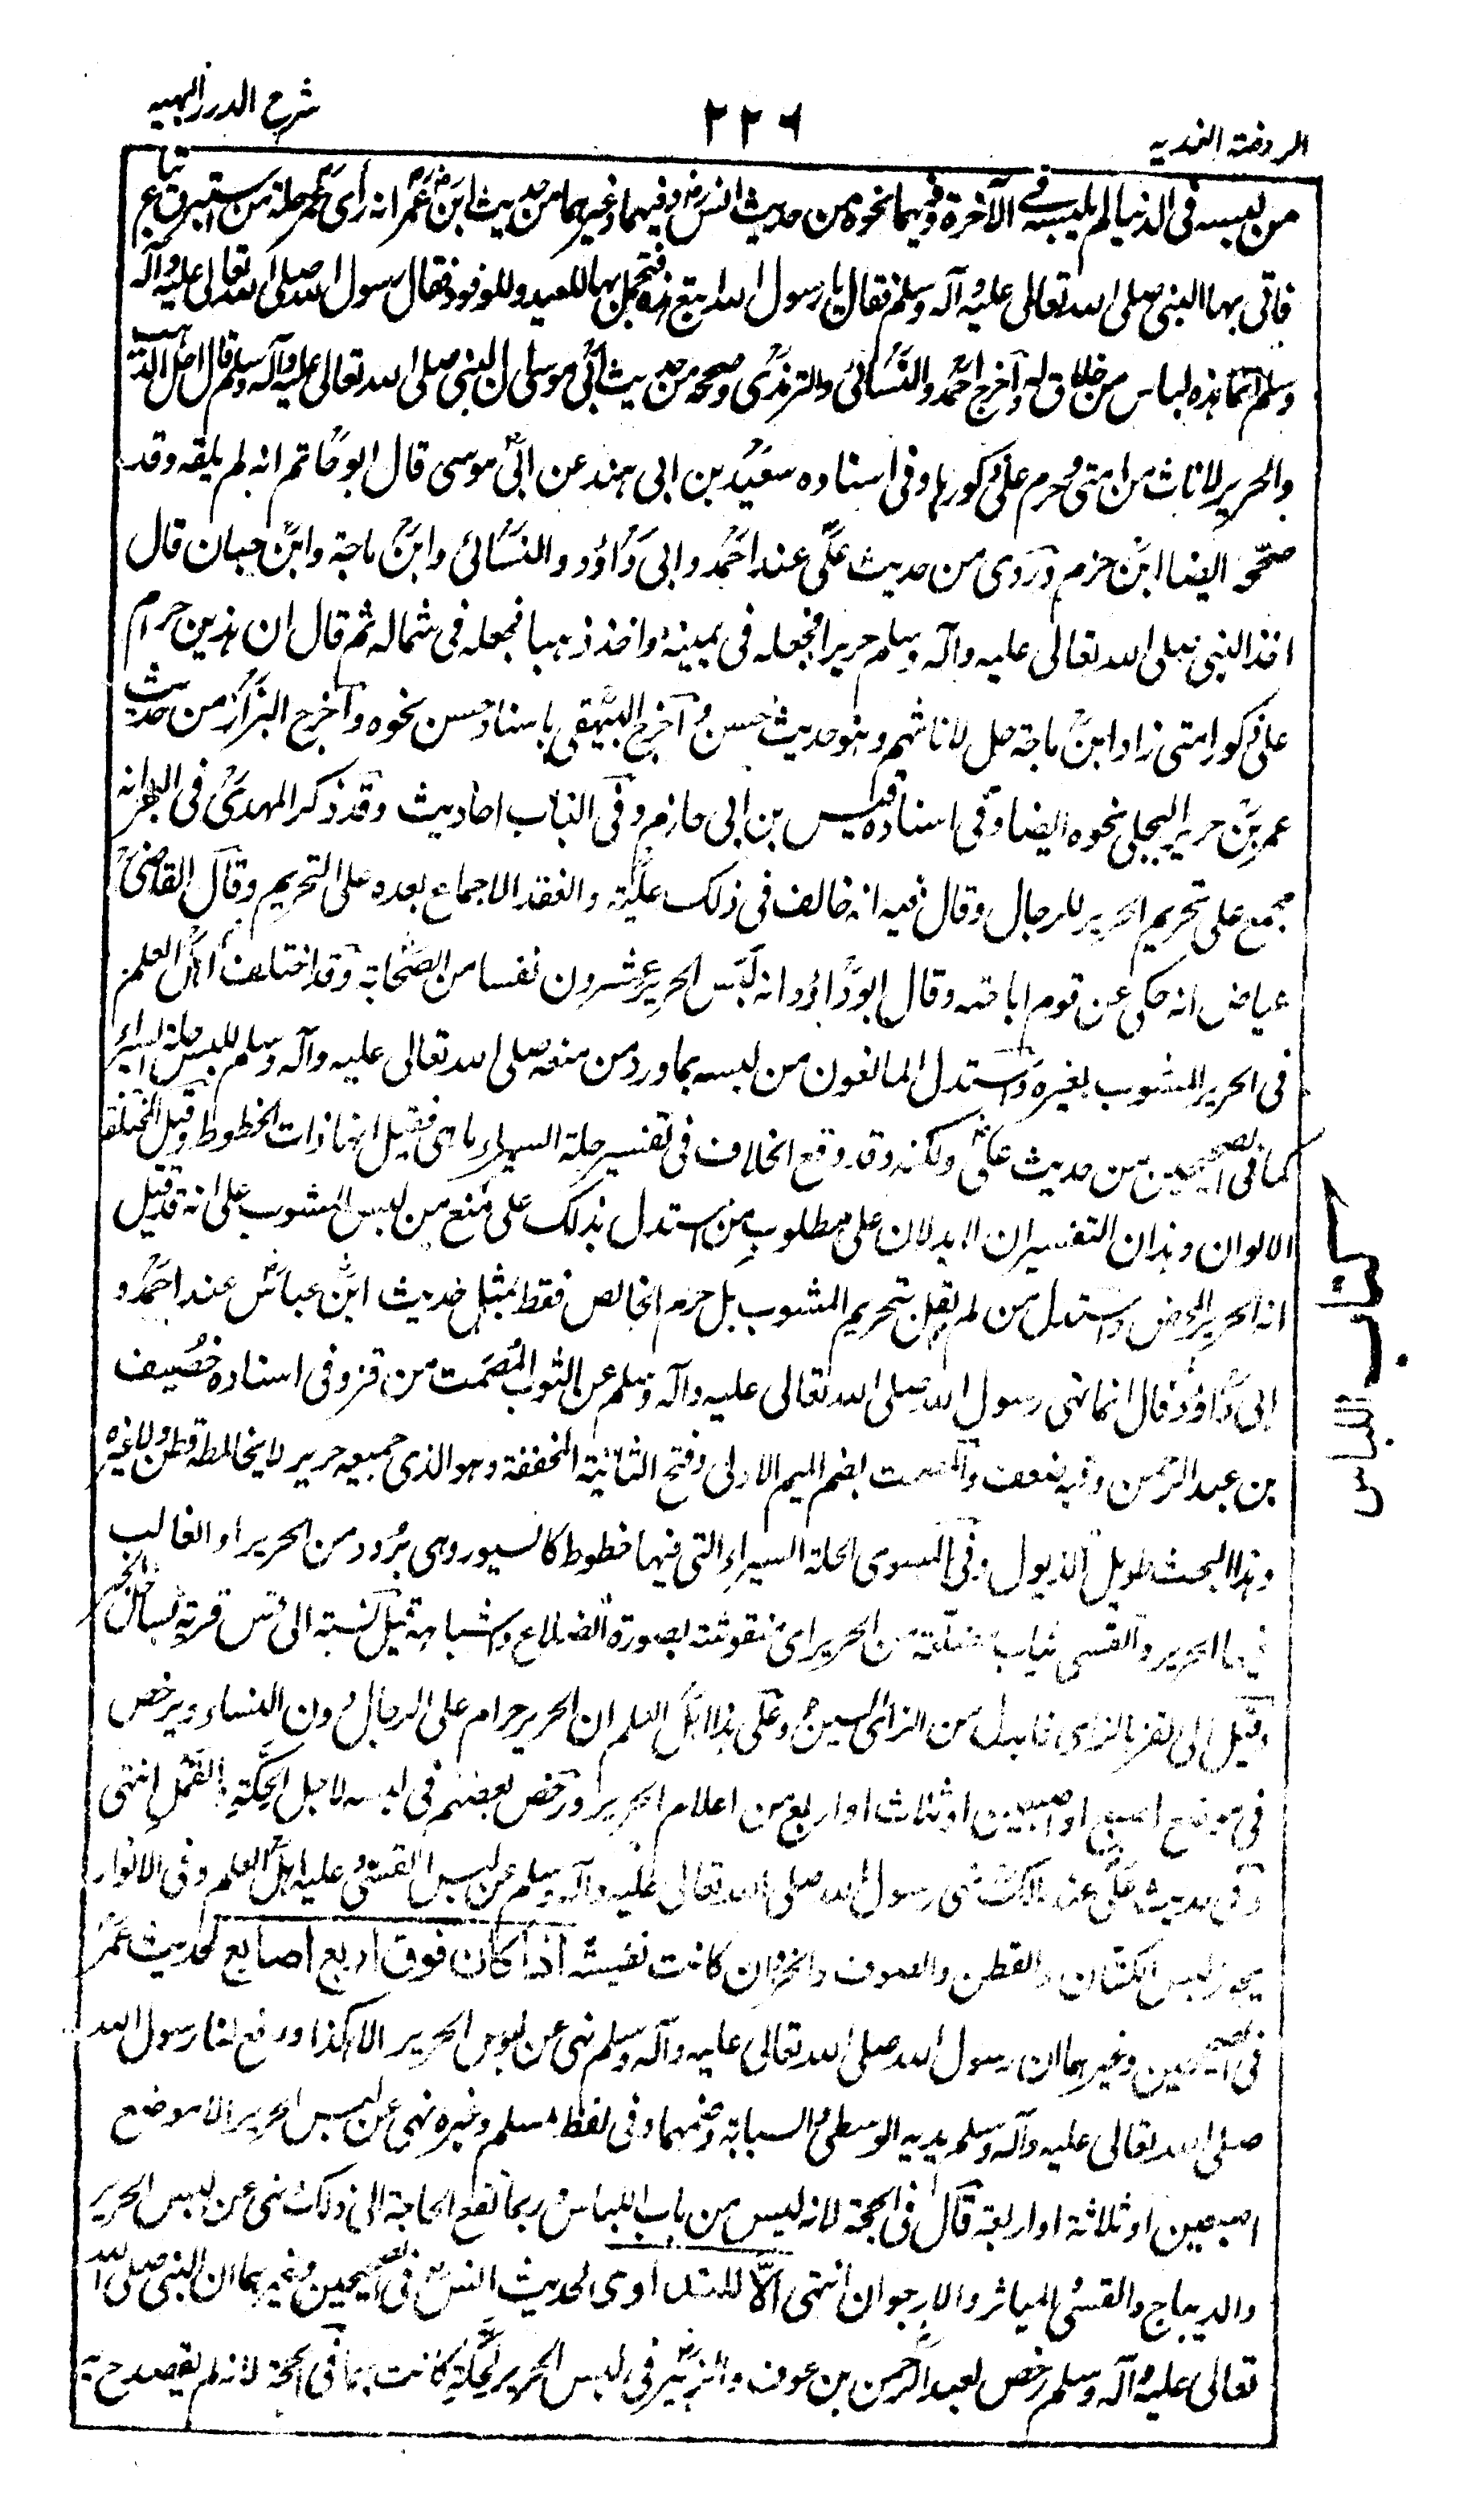 الروضة الندیه
۲۲۶
شرح الدرر البهیه
من لبسه فی الدنیا لم یلبسه فی الآخرة وفیهما نحوه من حدیث انس رض وفیهما وغیرهما من حدیث ابن عمر رض انه رأی عمر حلة من استبرق تباع
فاتی بها النبی صلی الله تعالی علیه وآله وسلم فقال یا رسول الله ابتع هذه فتجمل بها للعید وللوفود فقال رسول الله صلی الله تعالی علیه وآله
وسلم انما هذه لباس من لا خلاق له واخرج احمد والنسائی والترمذی وصححه من حدیث ابی موسی ان النبی صلی الله تعالی علیه وآله وسلم قال احل الذهب
والحریر لاناث من امتی وحرم علی ذکورها وفی اسناده سعید بن ابی هند عن ابی موسی قال ابو حاتم انه لم یلقه وقد
صححه ایضا ابن حزم وروی من حدیث علی عند احمد وابی داؤد والنسائی وابن ماجة وابن حبان قال
اخذ النبی صلی الله تعالی علیه وآله وسلم حریرا فجعله فی یمینه واخذ ذهبا فجعله فی شماله ثم قال ان هذین حرام
علی ذکور امتی زاد ابن ماجة حل لاناثهم وهو حدیث حسن واخرج البیهقی باسناد حسن نحوه واخرج البزار من حدیث
عمر بن جریر البجلی نحوه ایضا وفی اسناده قیس بن ابی حازم وفی الباب احادیث وقد ذکر المهدی فی البحر انه
مجمع علی تحریم الحریر للرجال وقال فیه انه خالف فی ذلک علیة وانعقد الاجماع بعده علی التحریم وقال القاضی
عیاض انه حکی عن قوم اباحته وقال ابو داؤد انه لبس الحریر عشرون نفسا من الصحابة وقد اختلف اهل العلم
فی الحریر المشوب بغیره واستدل المانعون من لبسه بما ورد من منعه صلی الله تعالی علیه وآله وسلم للبس حلة السیراء
کما فی الصحیحین من حدیث علی ولکنه قد وقع الخلاف فی تفسیر حلة السیراء ما هی فقیل انها ذات الخطوط وقیل المختلفة
الالوان وهذان التفسیران لا یدلان علی مطلوب من استدل بذلک علی منع من لبس المشوب علی انه قد قیل
انه الحریر المحض واستدل من لم یقل بتحریم المشوب بل حرم الخالص فقط بمثل حدیث ابن عباس عند احمد و
ابی داؤد قال انما نهی رسول الله صلی الله تعالی علیه وآله وسلم عن الثوب المصمت من قز وفی اسناده خصیف
بن عبد الرحمن وفیه ضعف والمصمت بضم المیم الاولی وفتح الثانیة المخففة وهو الذی جمیعه حریر لا یخالطه قطن ولا غیره
وهذا البحث طویل الذیول وفی المسوی الحلة السیراء التی فیها خطوط کالسیور وهی برود من الحریر او الغالب
فیها الحریر والقسی ثیاب مضلعة من الحریر ای منقوشة بصورة الضلاع واشباهه قیل نسبة الی قس قریة بساحل البحر
وقیل الی القز بالزای فابدل من الزای السین وعلی هذا اهل العلم ان الحریر حرام علی الرجال دون النساء ویرخص
فی موضع اصبع او اصبعین او ثلاث او اربع من اعلام الحریر ورخص بعضهم فی لبسه لاجل الحکة والقمل انتهی
وفی حدیث علی عند مالک نهی رسول الله صلی الله تعالی علیه وآله وسلم عن لبس القسی وعلیه اهل العلم وفی الانوار
یجوز لبس الکتان والقطن والصوف والخز وان کانت نفیسة اذا کان فوق اربع اصابع لحدیث عمر
فی الصحیحین وغیرهما ان رسول الله صلی الله تعالی علیه وآله وسلم نهی عن لبوس الحریر الا هکذا ورفع لنا رسول الله
صلی الله تعالی علیه وآله وسلم یدیه الوسطی والسبابة وضمهما وفی لفظ مسلم وغیره نهی عن لبس الحریر الا موضع
اصبعین او ثلاثة او اربعة قال فی الحجة لانه لیس من باب اللباس وربما تقع الحاجة الی ذلک ونهی عن لبس الحریر
والدیباج والقسی والمیاثر والارجوان انتهی الا للتداوی لحدیث انس رض فی الصحیحین وغیرهما ان النبی صلی الله
تعالی علیه وآله وسلم رخص لعبد الرحمن بن عوف والزبیر فی لبس الحریر لحکة کانت بهما فی الحجة لانه لم یقصد ح به
کتاب اللباس